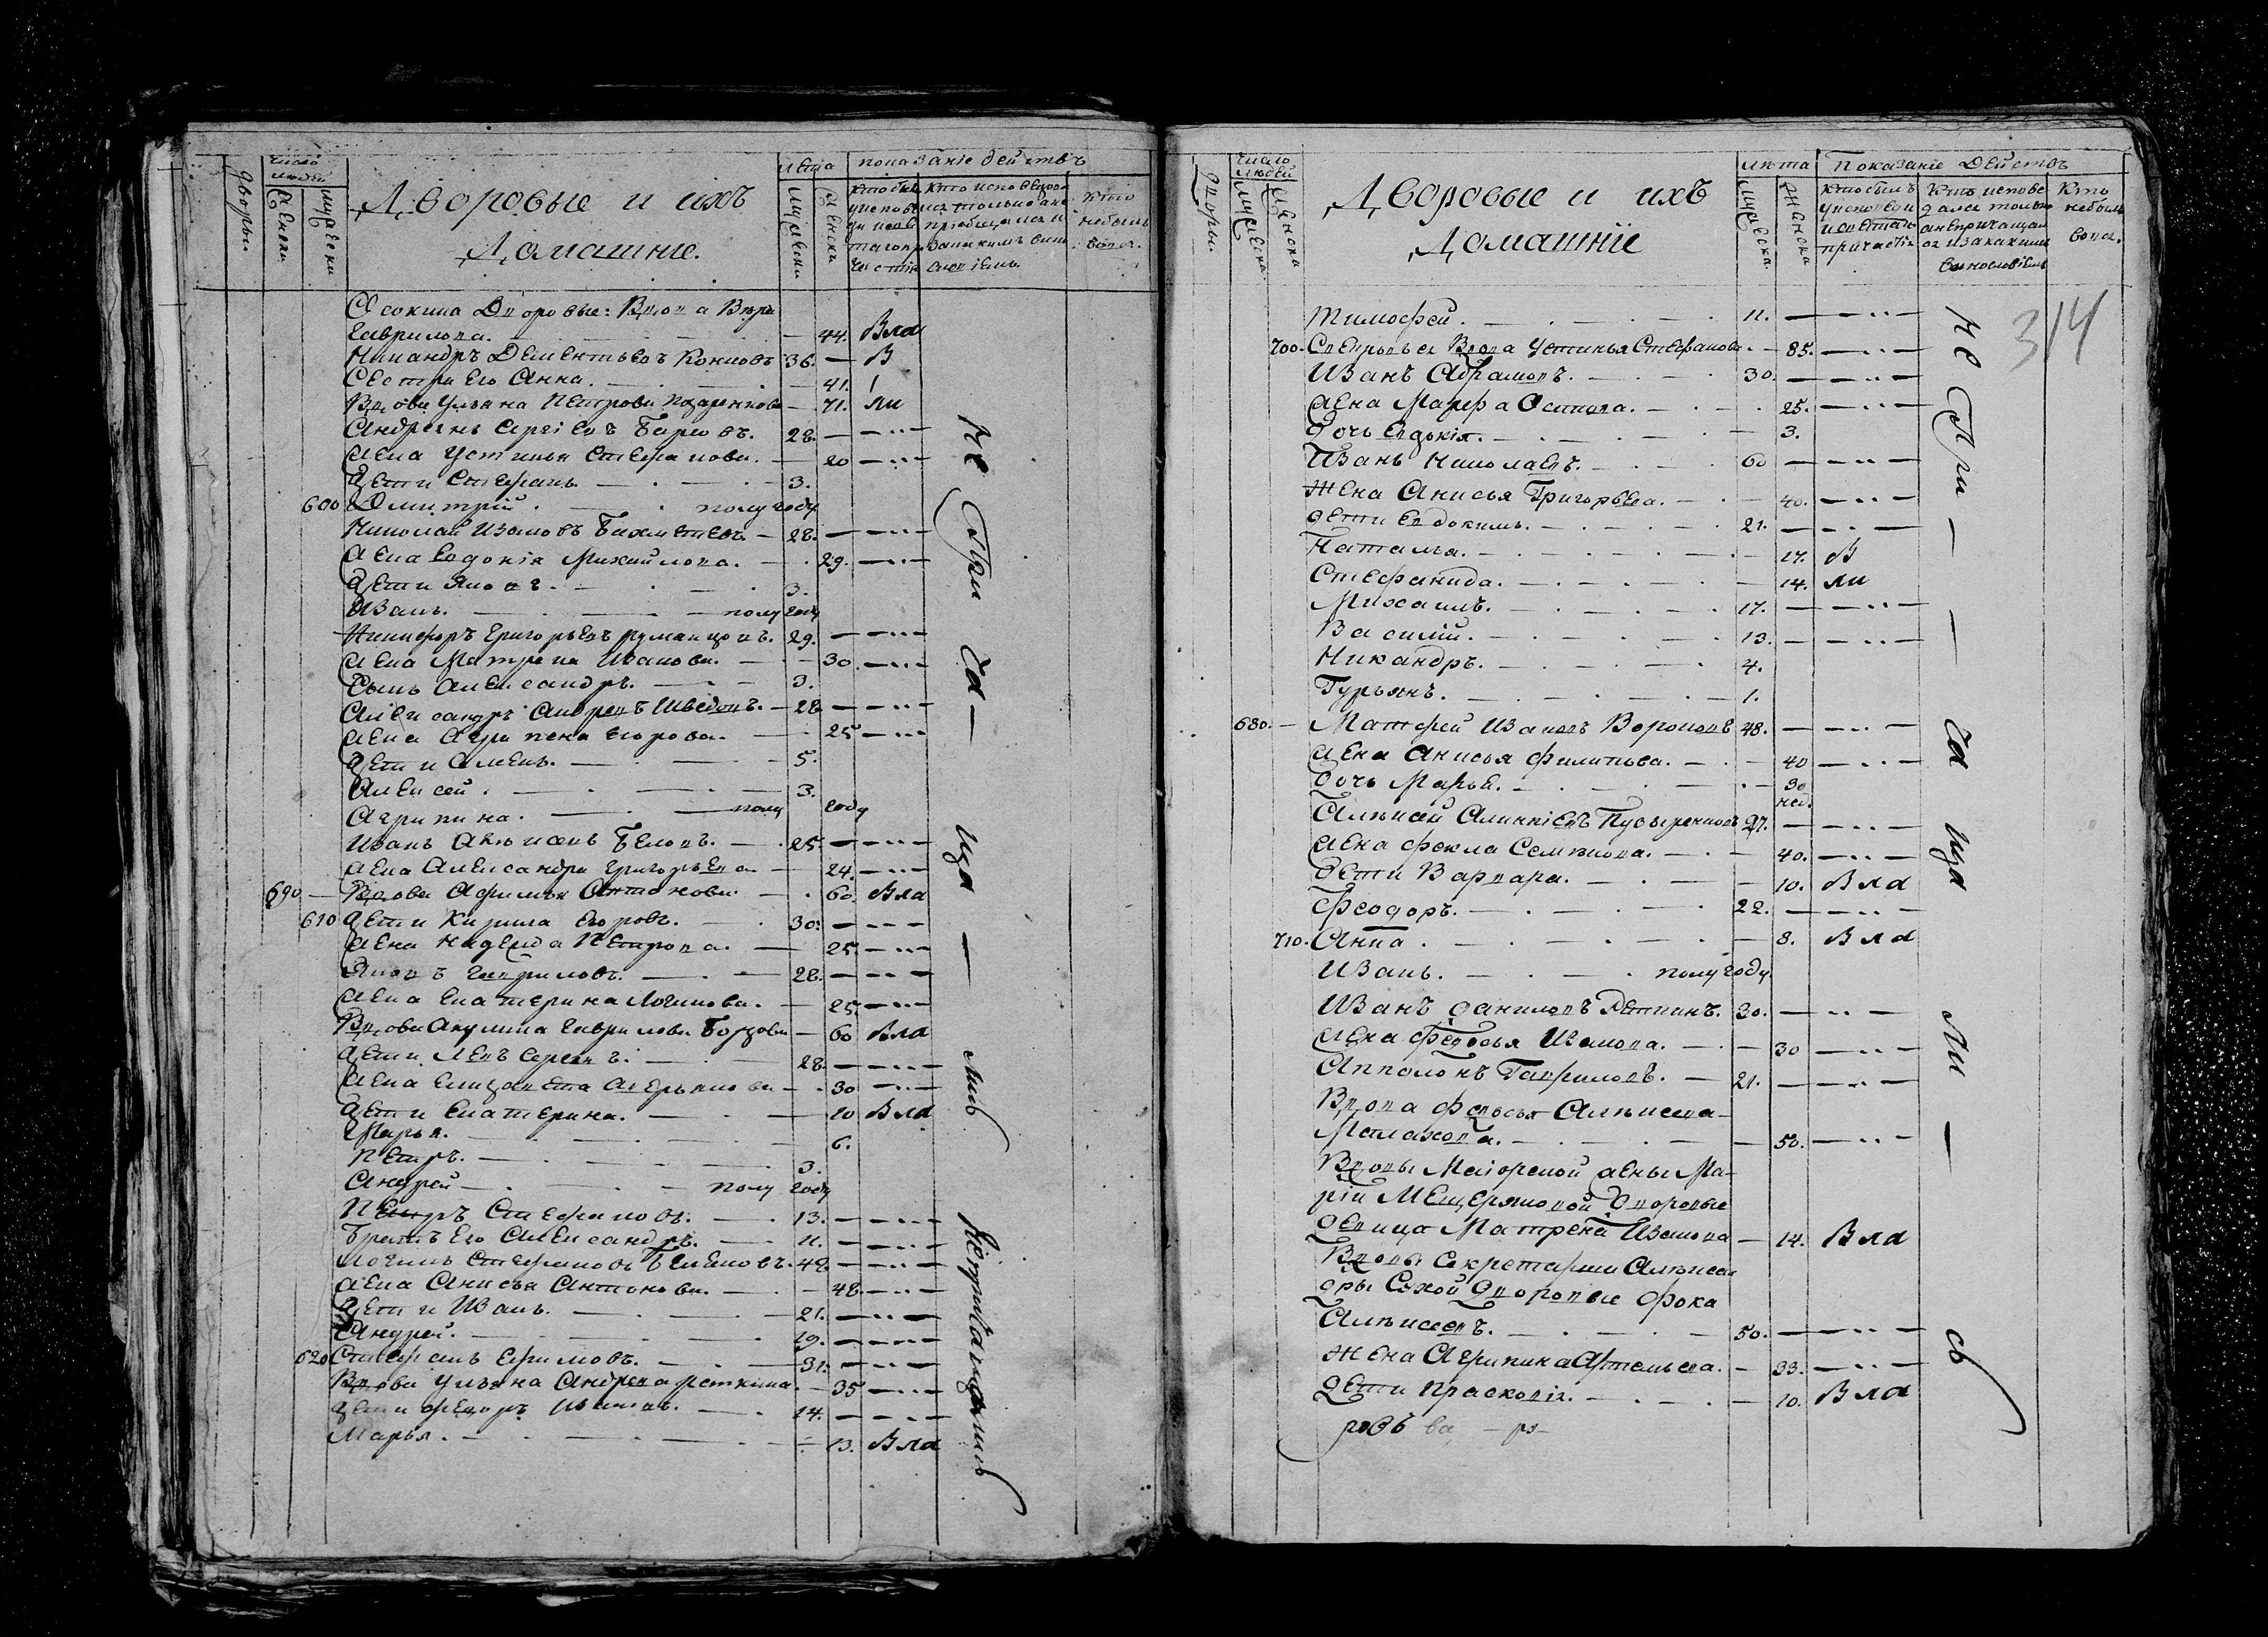 число
людей
дворы
женски
мужески
Дворовые и ихъ
Домашние.
лета
мужески
женски
показание действъ
Кто былъ
у исповеди
кто исповедова
Кто
небылъ
вовсе.
Осокина Дворовые: Вдова Вера
Гаврилова. — 44. Вла
Никандръ Дементьевъ Конновъ 36. — В
Сестра Его Анна. — 41.
Вдова Ульяна Петрова — 71. ли
Андреянъ Сергіевъ 28. —
жена Устинья Степанова. — 20 —
дети Стефанъ — 3.
600 Дмитрій полугоду
Николай Ивановъ Бахметевъ — 28. —
жена Евдокія Михайлова. — 29. —
дети Яковъ. — 3.
Иванъ. — полугоду
Никифоръ Григорьевъ Румянцовъ. 29. —
жена Матрена Иванова. — 30. —
Сынъ Александръ. — 3.
Александръ Андреевъ Шведовъ. — 28 —
жена Агрипена Егорова. — 25 —
дети Семенъ. — 5.
Алексей. — 3.
Агрипина. — полу году
Иванъ Беловъ. — 25. —
жена Александра Григорьева — 24. —
690 — Вдова Афимья Антонова. — 60. Вла
610 дети Кирила Егоровъ. 30. —
жена Надежда Петрова. — 25. —
Яковъ Гавриловъ. — 28. —
жена Екатерина Логинова. — 25. —
Вдова Акулина Гаврилова — 60 Вла
дети Левъ Сергеевъ. 28. —
жена Елизавета — 30 —
дети Екатерина. — 10 Вла
Марья. — 6.
Петръ. — 3.
Андрей — полу году
Петръ Стефановъ. — 13. —
Братъ Его Александръ. — 11. —
Логинъ Стефановъ 48 —
жена Анисья Антонова. — 48. —
дети Иванъ. — 21. —
Андрей. — 19. —
620 Стефанъ Ефимовъ. — 31. —
Вдова Ульяна Андреева — 35 —
дети Федоръ Ивановъ. — 14. —
Марья. — 13. Вла
Не При ча — ща — лись
число
людей
дворы.
мужеска
женска
Дворовые и ихъ
Домашніе
лета
мужеска
женска
Показаніе Действъ
Кто былъ
у исповеди
и святаго
причастія
Кто испове
дался только
анепричащал
ся изакакимъ
винословіемъ
Кто
небылъ
вовсе.
314
Тимофей. — 11. —
700. Вдова Устинья Стефанова — 85. —
Иванъ Абрамовъ. — 30. —
жена Марфа Осипова. — 25. —
дочь Евдокія. — 3.
Иванъ Николаевъ. — 60 —
Жена Анисья Григорьева. — 40. —
дети Евдокимъ. — 21. —
Наталья. — 17. В
Стефанида. — 14. ли
Михаилъ. — 17. —
Василій. — 13. —
Никандръ. — 4.
Гурьянъ. — 1.
680. — Матфей Ивановъ Вороновъ 48. —
жена Анисья Филипова. — 40 —
дочь Марья. — 30
нед.
Алексей 27. —
жена Фекла Семенова. — 40. —
дети Варвара. — 10. Вла
Феодоръ. — 22. —
710. Анна. — 8. Вла
Иванъ. — полугоду
Иванъ Даниловъ 30. —
жена Федосья Иванова. — 30 —
Апполонъ Гавриловъ. — 21. —
Вдова Федосья Алексеева
— 50. —
Вдовы Маіорской жены Ма-
ріи Мещеряковой Дворовые
девица Матрена Иванова — 14. Вла
Вдовы Секретарши Алексан
дры Сухой Дворовые Фока
Алексеевъ. — 50. —
Жена Агрипина Артемьева. — 33. —
Дети Прасковія. — 10. Вла
Не При — — ча ща ли — сь